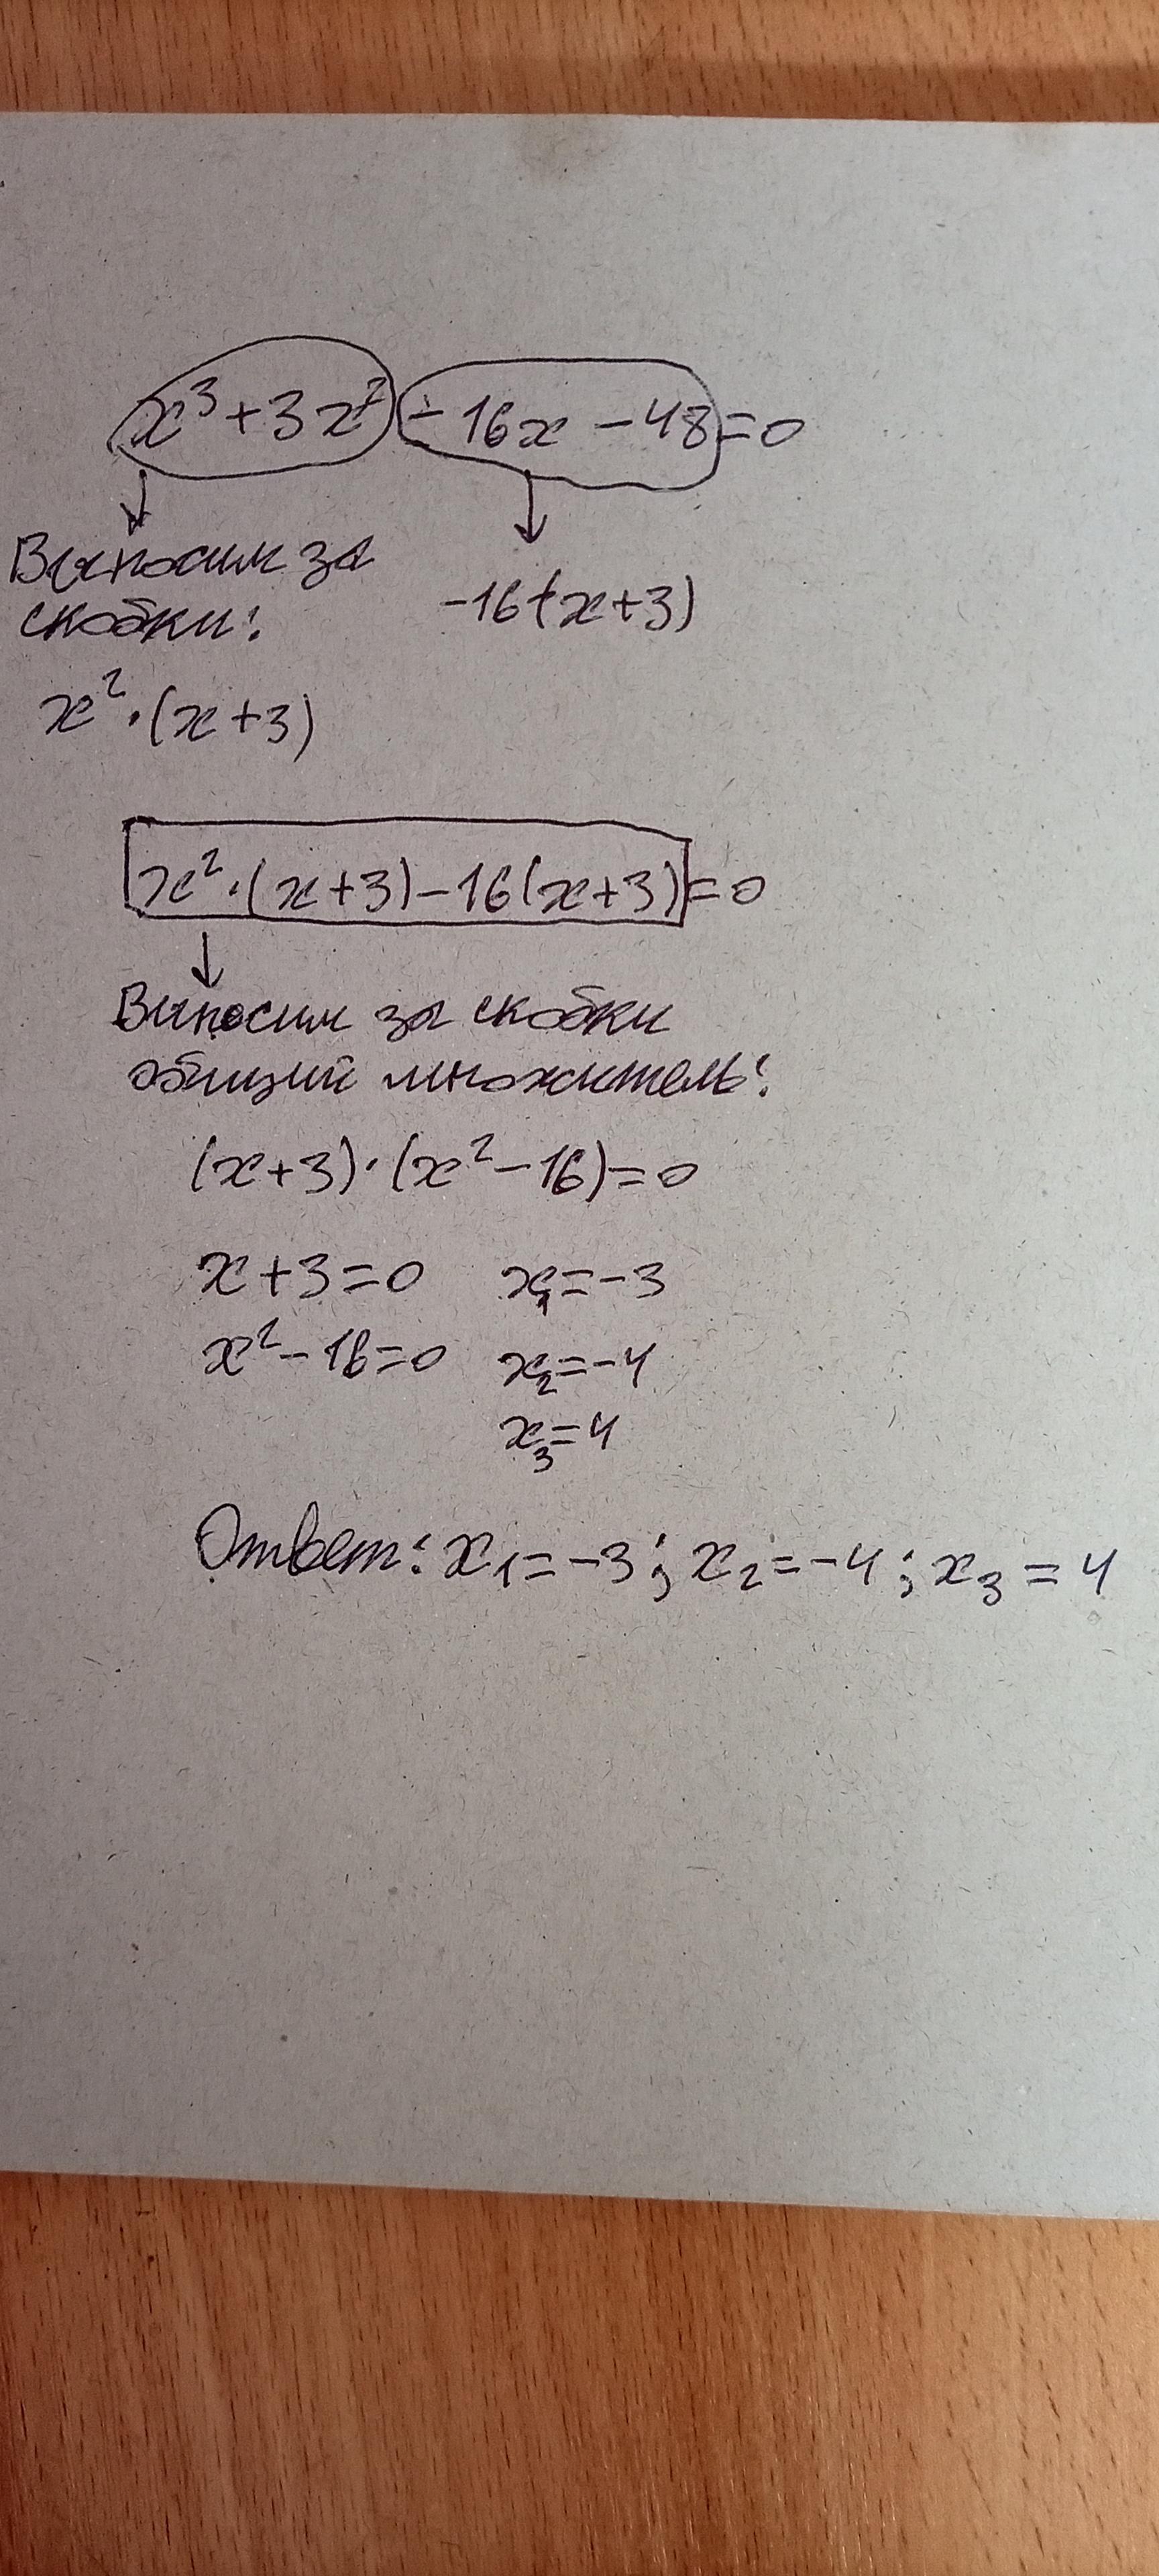 x³+3x² -16x -48=0
Выносим за
скобки:
-16(x+3)
x²·(x+3)
x²·(x+3)-16(x+3)=0
Выносим за скобки
общий множитель:
(x+3)·(x²-16)=0
x+3=0 x₁=-3
x²-16=0 x₂=-4
x₃=4
Ответ: x₁=-3; x₂=-4; x₃=4